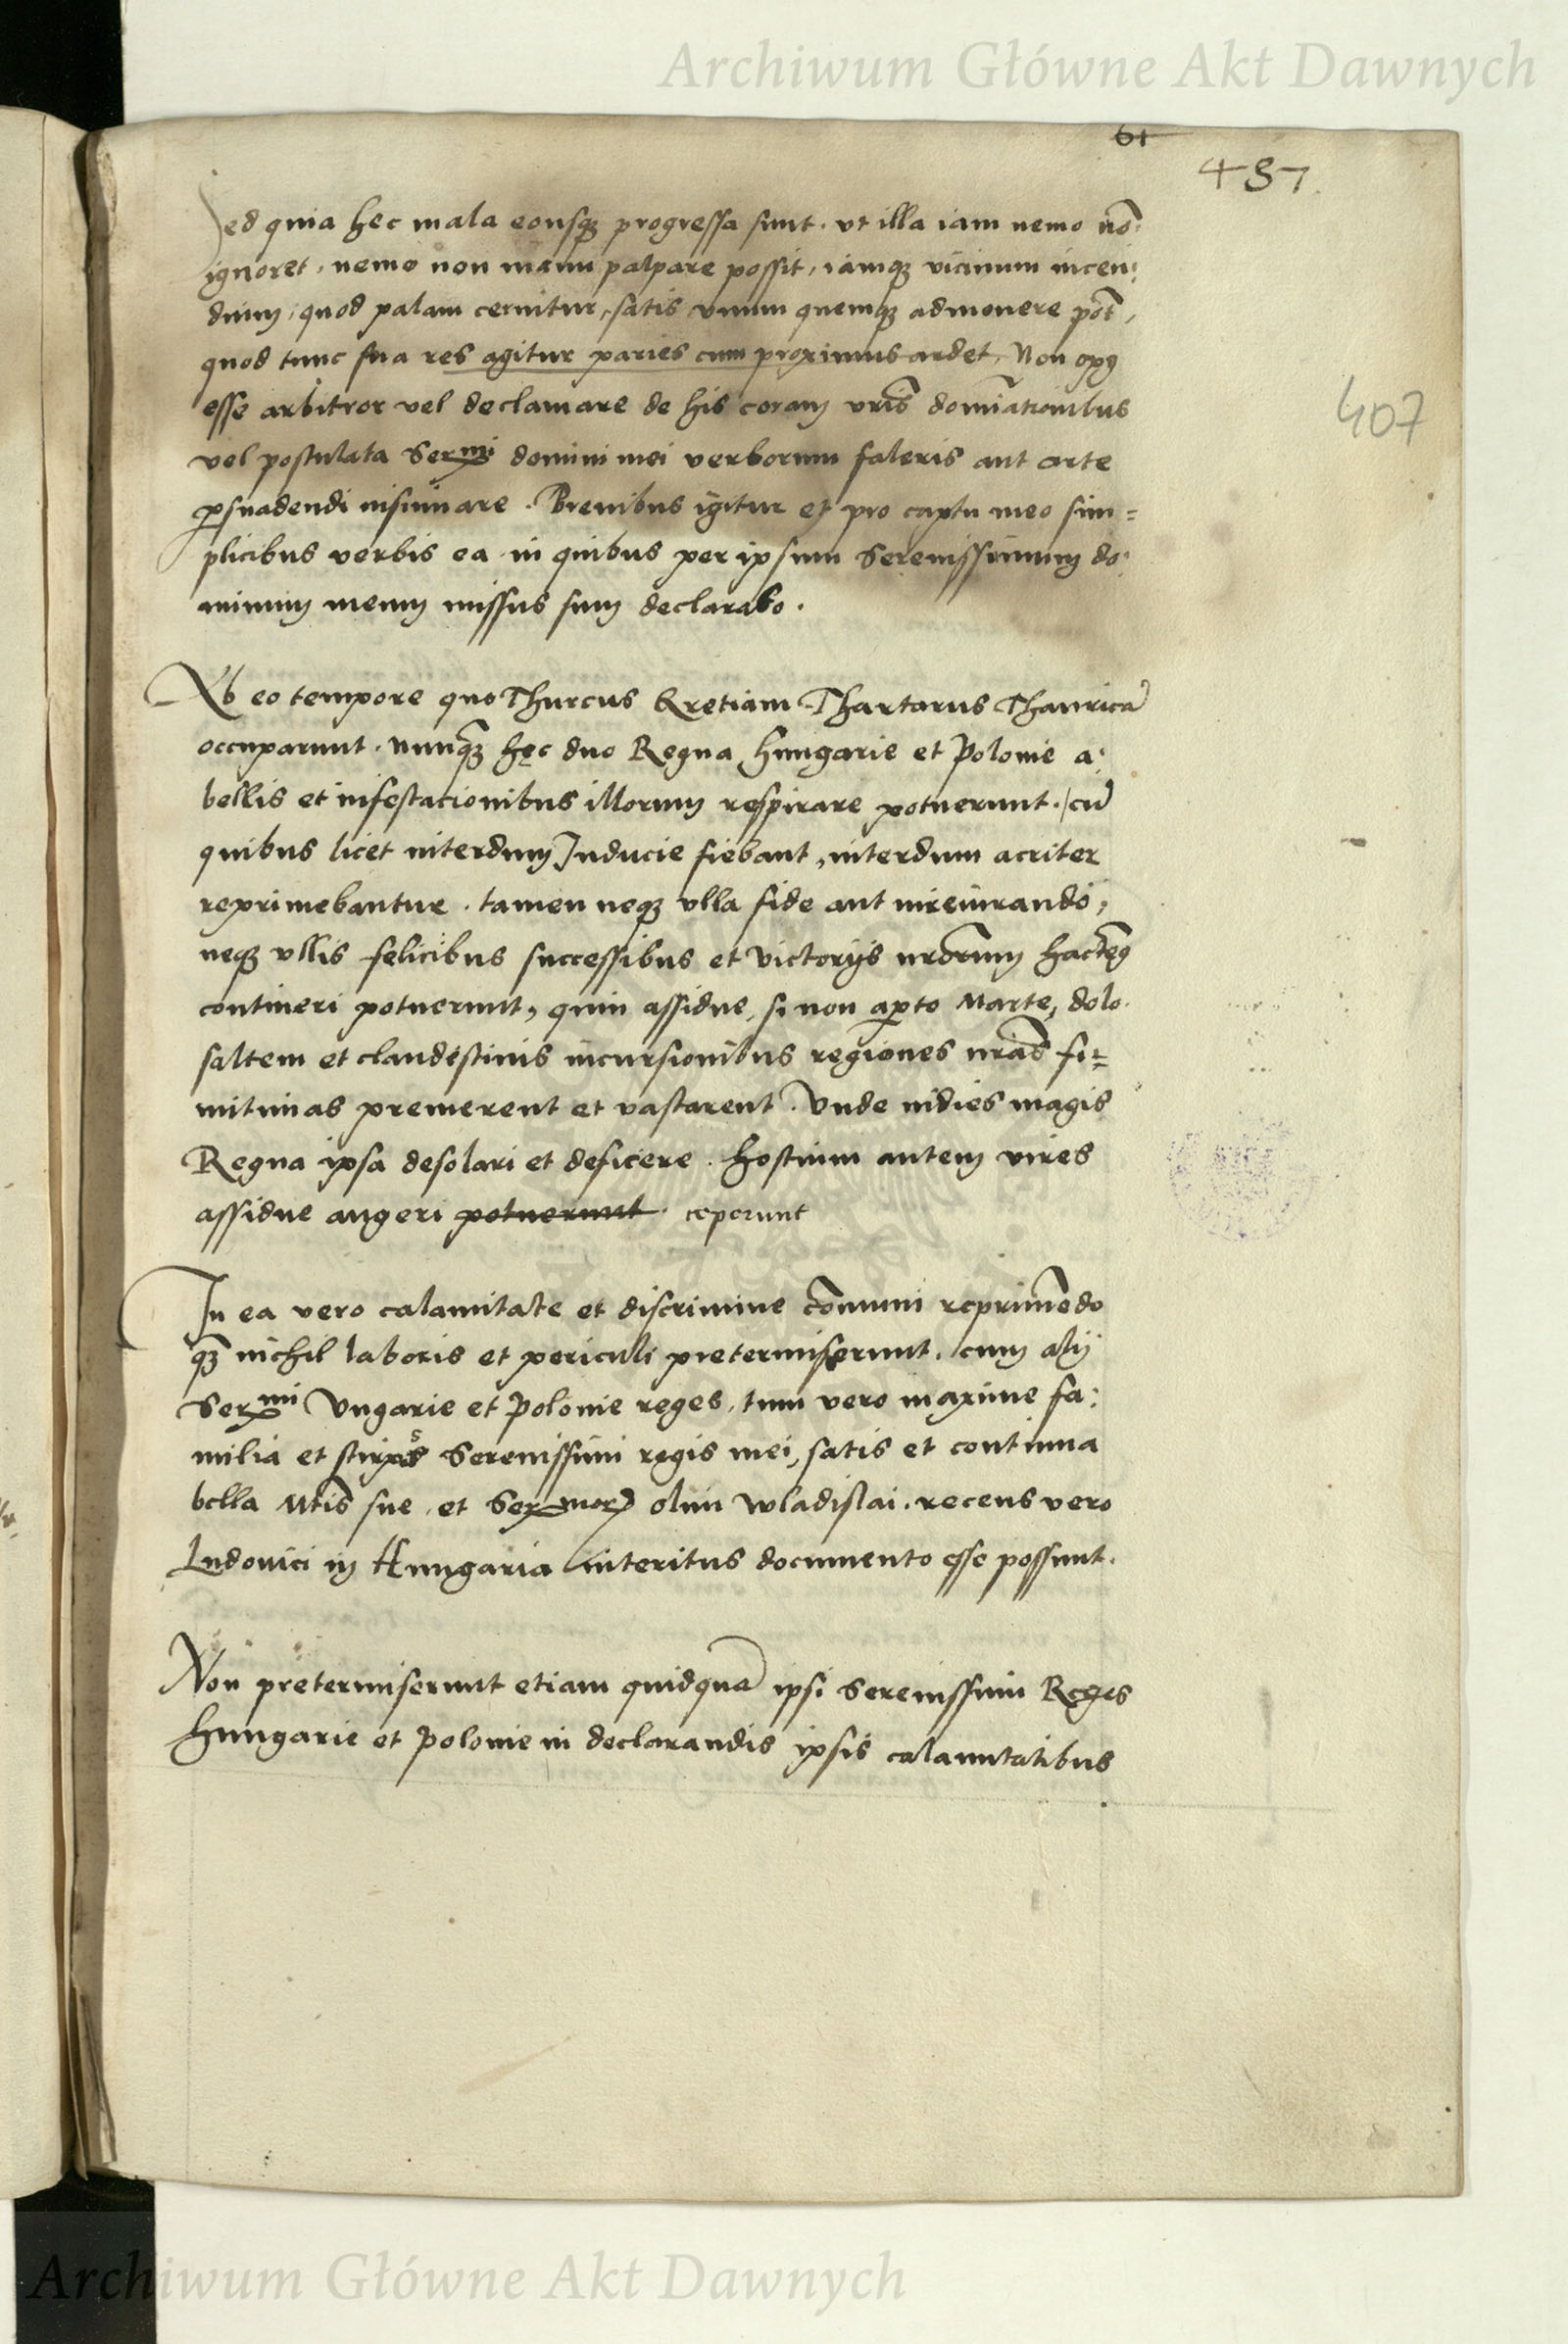 Archiwum Główne Akt Dawnych
61
457
407
Sed quia hec mala eousqȝ progressa sunt . vt illa iam nemo nō
ignoret , nemo non manu palpare possit , iamqȝ vicinum incen:
dium , quod palam cernitur , satis vnum quemqȝ admonere pōt ,
quod tunc sua res agitur paries cum proximus ardet , Non opꝯ
esse arbitror vel declamare de his coram vrīs domīationibus
vel postulata Serᵐⁱ domini mei verborum faleris aut arte
ꝑsuadendi insinuare . Breuibus igitur et pro captu meo sim=
plicibus verbis ea in quibus per ipsum Serenissimum do:
minum meum missus sum declarabo .
Ab eo tempore quo Thurcus Gretiam Thartarus Thauricā
occuparunt . nunqȝ hęc duo Regna Hungarie et Polonie a:
bellis et infestacionibus illorum respirare potuerunt . cū
quibus licet interdum Inducie fiebant , interdum acriter
reprimebantur . tamen neqȝ vlla fide aut iureiurando ,
neqȝ vllis felicibus successibus et victorijs nrōrum hactenꝯ
contineri potuerunt , quin assidue , si non aꝑto Marte , dolo
saltem et clandestinis incursionibus regiones nrās fi=
nitimas premerent et vastarent . Vnde indies magis
Regna ipsa desolari et deficere . hostium autem vires
assidue augeri potuerunt . ceperunt
In ea vero calamitate et discrimine cōmuni reprimēdo
qȝ nichil laboris et periculi pretermiserunt . cum alij
Serᵐⁱ Vngarie et Polonie reges , tum vero maxime fa:
milia et stirps Serenissimi regis mei , satis et continua
bella Mtīs sue . et Serᵐᵒʳ olim Wladislai . recens vero
Ludouici in Hungaria interitus documento esse possunt .
Non pretermiserunt etiam quidquā ipsi Serenissimi Reges
Hungarie et Polonie in declarandis ipsis calamitatibus
Archiwum Główne Akt Dawnych